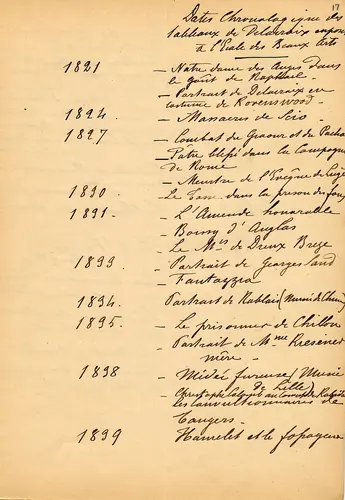 17
Dates Chronologique des
tableaux de Delacroix exposés
à l'Ecole des Beaux Arts
1821 - Notre dame des Anges dans
le goût de Raphael -
- Portrait de Delacroix en
costume de Ravenswood -
1824 - Massacres de Scio.
1827 - Combat du Giaour et du Pacha
- Pâtre blessé dans la Campagne
de Rome
- Meurtre de l'Evêque de Liège
1830 - Le Tasse dans la prison des fous
1831 - - L'Amende honorable
- Boissy d'Anglas
- Le Mis de Dreux Brezé
1833 - Portrait de Georges Sand
- Fantazzia
1834. Portrait de Rablais (Musée de Chinon)
1835. - Le prisonnier de Chillon
- Portrait de Mme Riesener
mère -
1838 - Médée furieuse (Musée
de Lille)
- Christophe Colomb au Couvent de Rabida
- Les convultionnaires de
Tangers -
1839 - Hamelet et le fossoyeur